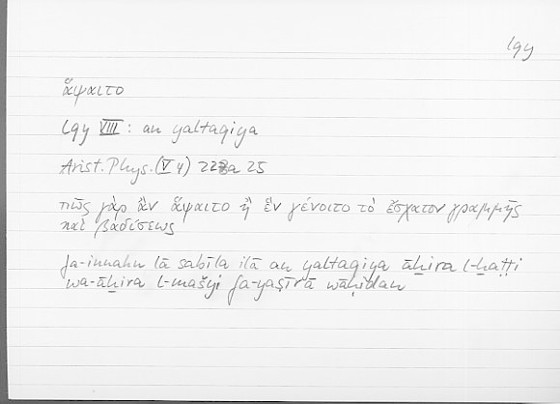 lqy
ἅψαιτο
lqy VIII: an yaltaqiya
Arist. Phys. (V 4) 228a 25
πῶς γὰρ ἂν ἅψαιτο ἢ ἓν γένοιτο τὸ ἔσχατον γραμμῆς
καὶ βαδίσεως
fa-innahu lā sabīla ilā an yaltaqiya āḫira l-ḫaṭṭi
wa-āḫira l-mašyi fa-yaṣīrā wāḥidan